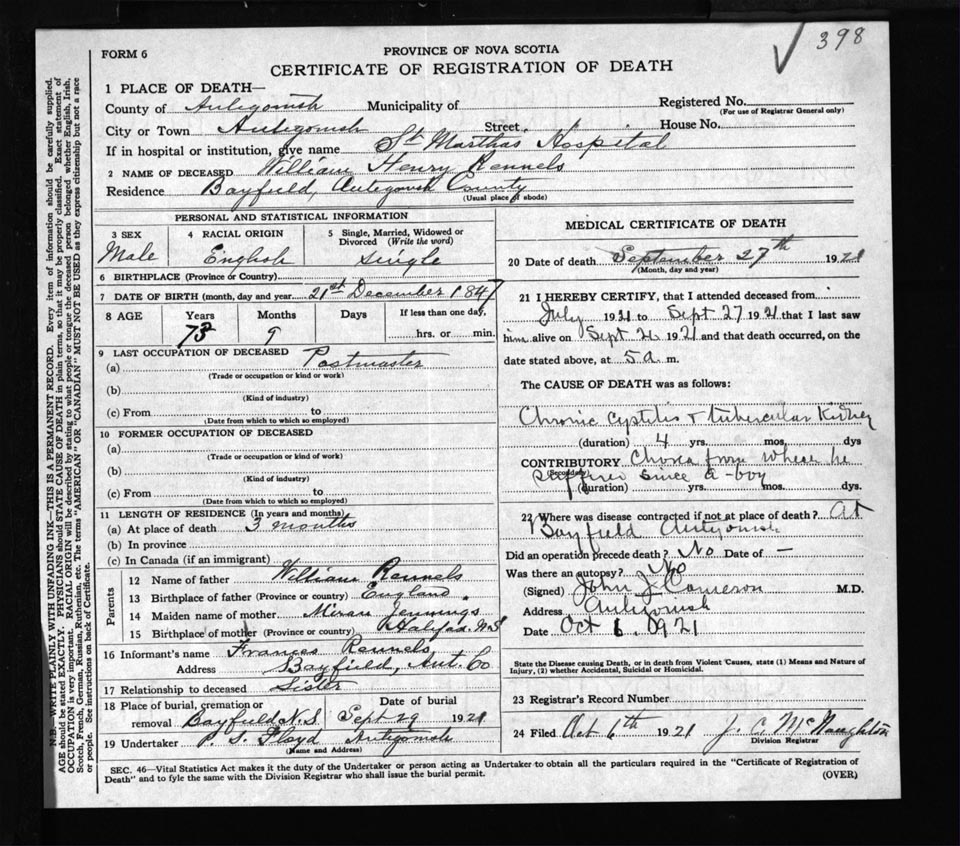 398
FORM 6
PROVINCE OF NOVA SCOTIA
CERTIFICATE OF REGISTRATION OF DEATH
1 PLACE OF DEATH—
County of Antigonish Municipality of Registered No.
(For use of Registrar General only)
City or Town Antigonish Street House No.
If in hospital or institution, give name St Marthas Hospital
2 NAME OF DECEASED William Henry Rennels
Residence Bayfield, Antigonish County
(Usual place of abode)
PERSONAL AND STATISTICAL INFORMATION
3 SEX 4 RACIAL ORIGIN 5 Single, Married, Widowed or Divorced (Write the word)
Male English single
6 BIRTHPLACE (Province or Country)
7 DATE OF BIRTH (month, day and year 21st December 1847
8 AGE Years Months Days If less than one day,
73 9 hrs. or min.
9 LAST OCCUPATION OF DECEASED
(a) Postmaster
(Trade or occupation or kind or work)
(b)
(Kind of industry)
(c) From to
(Date from which to which so employed)
10 FORMER OCCUPATION OF DECEASED
(a)
(Trade or occupation or kind of work)
(b)
(Kind of industry)
(c) From to
(Date from which to which so employed)
11 LENGTH OF RESIDENCE (In years and months)
(a) At place of death 3 months
(b) In province
(c) In Canada (if an immigrant)
Parents
12 Name of father William Rennels
13 Birthplace of father (Province or country) England
14 Maiden name of mother Jennings
15 Birthplace of mother (Province or country) Halifax N S
16 Informant's name Frances Rennels
Address Bayfield, Ant. Co
17 Relationship to deceased Sister
18 Place of burial, cremation or removal Bayfield N.S. Date of burial Sept 29 1921
19 Undertaker P. S. Floyd Antigonish
(Name and Address)
MEDICAL CERTIFICATE OF DEATH
20 Date of death September 27th 1921
(Month, day and year)
21 I HEREBY CERTIFY, that I attended deceased from
July 1921 to Sept 27 1921 that I last saw
him alive on Sept 26 1921 and that death occurred, on the
date stated above, at 5 a m.
The CAUSE OF DEATH was as follows:
Chronic cystitis & tubercular Kidney
(duration) 4 yrs. mos. dys
CONTRIBUTORY Chorea from whear he
(Secondary)
suffered since a-boy
(duration) yrs. mos. dys.
22 Where was disease contracted if not at place of death? At
Bayfield Antigonish
Did an operation precede death? No Date of —
Was there an autopsy? No
(Signed) John J. Cameron M.D.
Address Antigonish
Date Oct 6. 1921
State the Disease causing Death, or in death from Violent Causes, state (1) Means and Nature of
Injury, (2) whether Accidental, Suicidal or Homicidal.
23 Registrar's Record Number
24 Filed Oct 6th 1921 J. C. McNaughton
Division Registrar
SEC. 46—Vital Statistics Act makes it the duty of the Undertaker or person acting as Undertaker to obtain all the particulars required in the "Certificate of Registration of
Death" and to fyle the same with the Division Registrar who shall issue the burial permit.
(OVER)
N.B.—WRITE PLAINLY WITH UNFADING INK—THIS IS A PERMANENT RECORD. Every item of information should be carefully supplied.
AGE should be stated EXACTLY. PHYSICIANS should STATE CAUSE OF DEATH in plain terms, so that it may be properly classified. Exact statement of
OCCUPATION is very important. RACIAL ORIGIN will be described by stating to what people or tongue the deceased person belonged whether English, Irish,
Scotch, French, German, Russian, Ruthenian, etc. The terms "AMERICAN" OR "CANADIAN" MUST NOT BE USED as they express citizenship but not a race
or people. See instructions on back of Certificate.